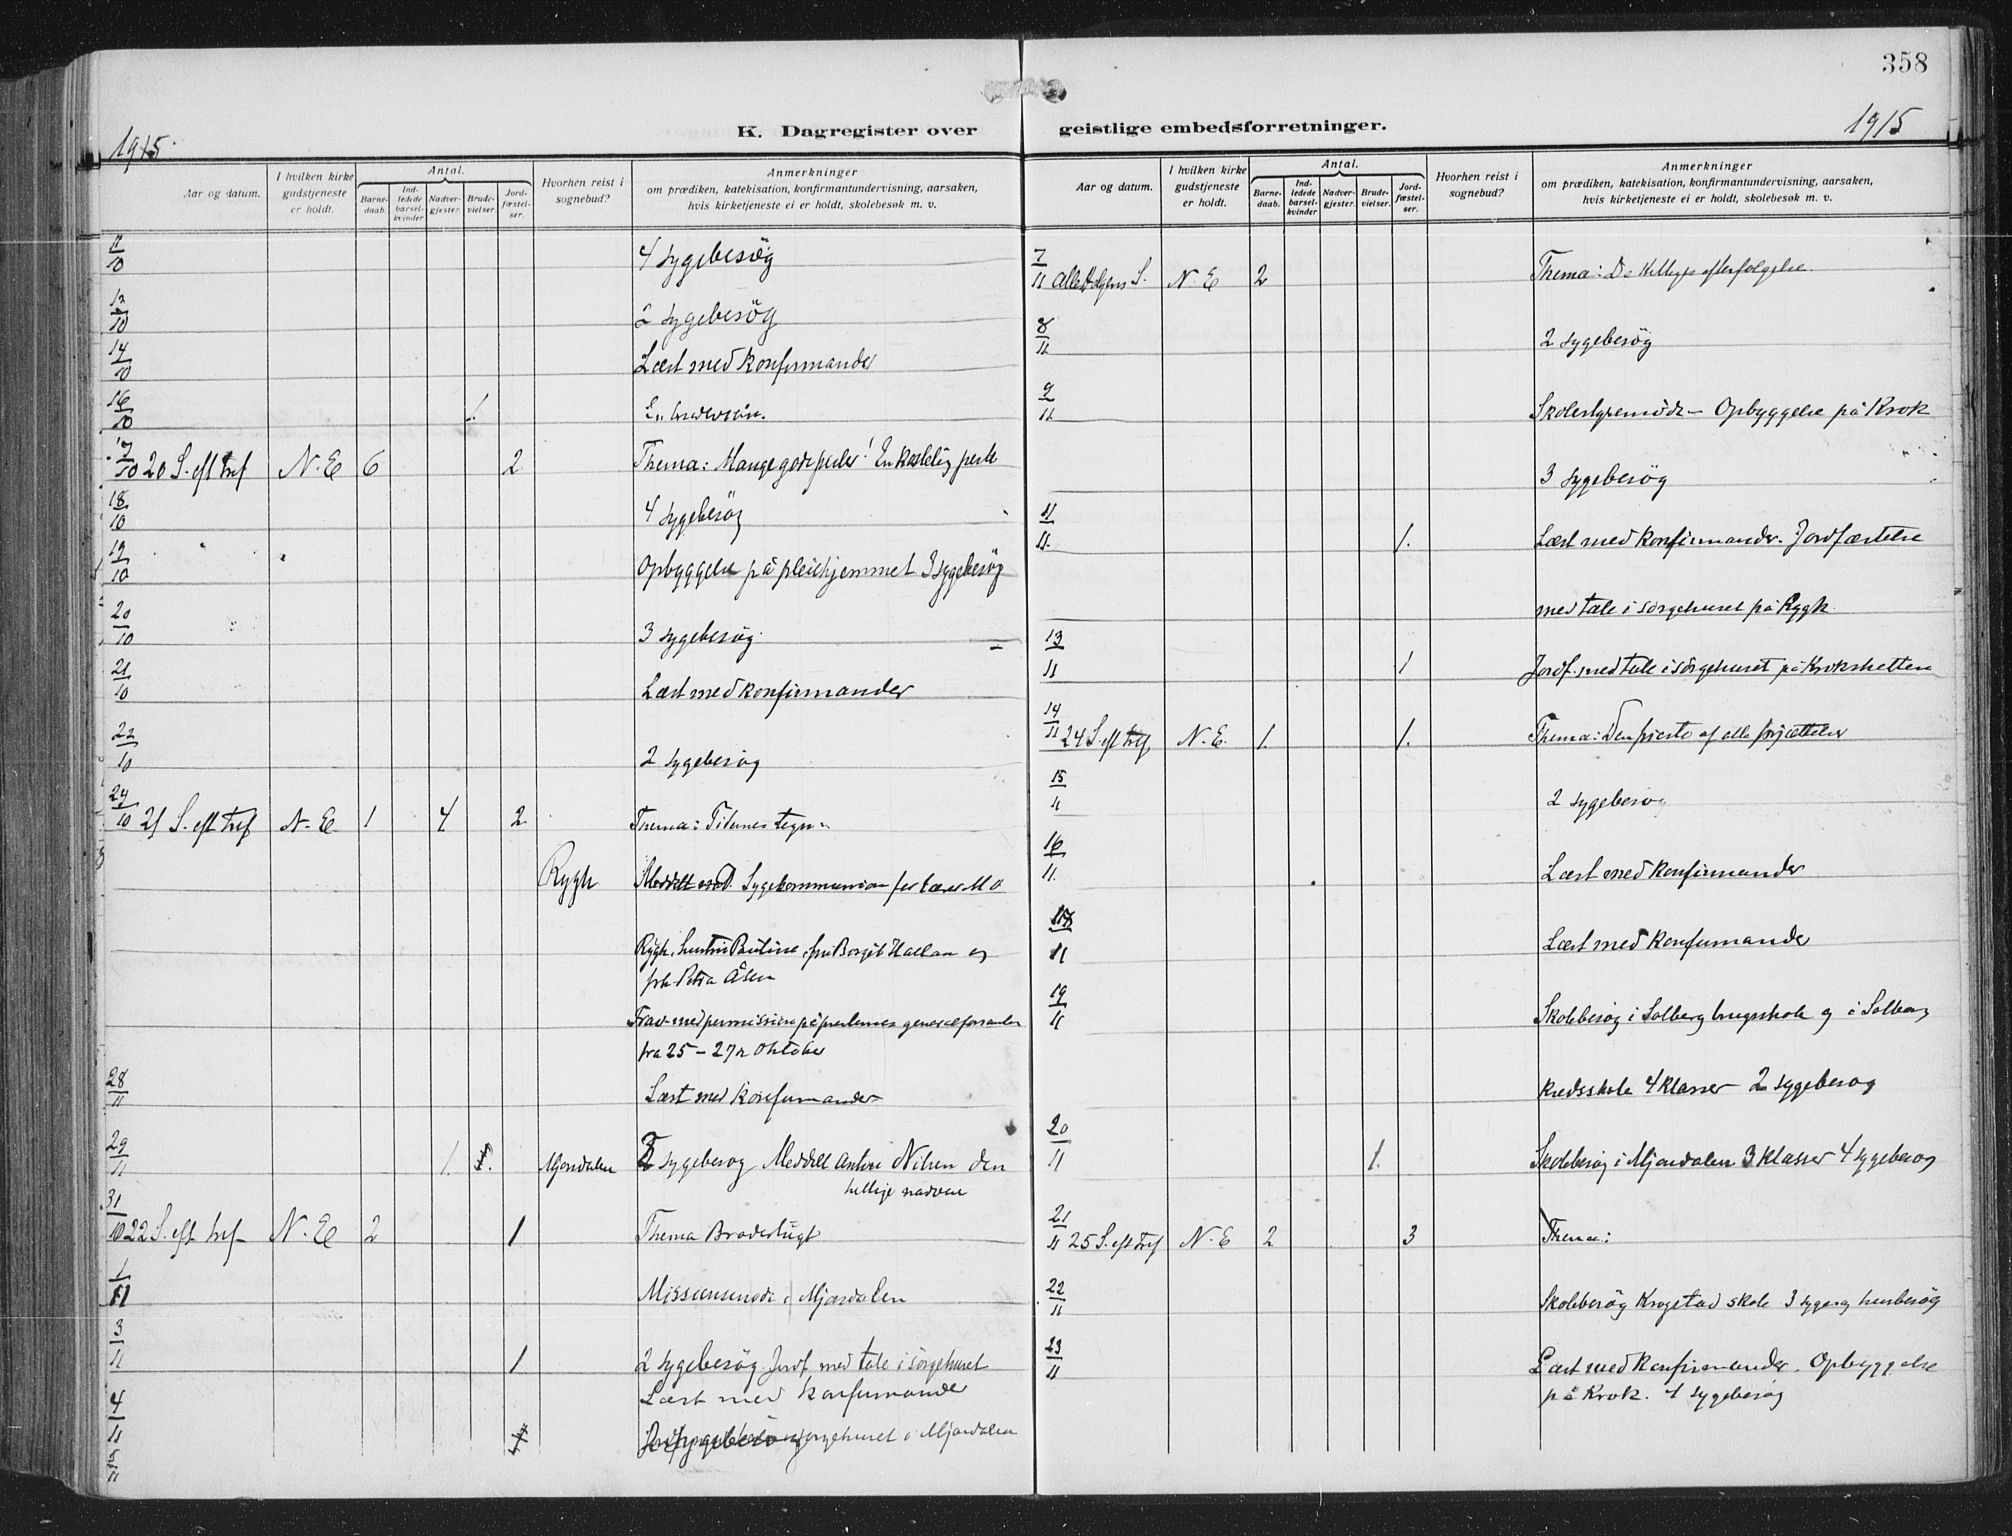 358
1915
K. Dagregister over
Aar og datum.
I hvilken kirke gudstjeneste er holdt.
Antal.
Barne-daab.
Ind-ledede barsel-kvinder
Nadver-gjester.
Brude-vielser.
Jord-fæstel-ser.
Hvorhen reist i sognebud?
Anmerkninger
om prædiken, katekisation, konfirmantundervisning, aarsaken,
hvis kirketjeneste ei er holdt, skolebesøk m. v.
11/10 4 sygebesøg
12/10 2 sygebesög
14/10 Læst med konfirmander
16/10 1.
17/10 20 S. eft tref N. E 6 2 Thema: Mange gode perler! En kostelig perle
18/10 4 sygebesög
19/10 Opbyggelse på pleiehjemmet 3 sygebesög
20/10 3 sygebesøg.
21/10 Læst med konfirmander
22/10 2 sygebesøg
24/10 21 S. eft tref N. E 1 4 2 Thema: Tidernes tegn.
Rygh Meddelt Sygekommunion
Rygh, hustru Pauline, fru Borgil Hallan og
frk. Petra Åsen
med permission på presternes generalforsamlen
fra 25 – 27n Oktober
28/11 Læst med konfirmander
29/11 1. Mjøndalen 2 sygebesøg Meddelt Anton Nilsen den
hellige nadvere
31/10 22 S. eft tref N. E 2 1 Thema Broderlugt
1/11 Missionsmøde i Mjøndalen
3/11 1 2 sygebesøg. Jordf. med tale i sörgehuset
4/11 Læst med konfirmander
5/11 sørgehuset i Mjøndalen
geistlige embedsforretninger.
1915
Aar og datum.
I hvilken kirke gudstjeneste er holdt.
Antal.
Barne-daab.
Ind-ledede barsel-kvinder
Nadver-gjester.
Brude-vielser.
Jord-fæstel-ser.
Hvorhen reist i sognebud?
Anmerkninger
om prædiken, katekisation, konfirmantundervisning, aarsaken,
hvis kirketjeneste ei er holdt, skolebesøk m. v.
7/11 Alle Helgens S. N. E 2 Thema: De helliges efterfølgelse.
8/11 2 sygebesög
9/11 Skolestyremøde – Opbyggelse på Krok
3 sygebesøg
11/11. 1. Læst med konfirmander. Jordfæstelse
med tale i sørgehuset på Rygh.
13/11 1 Jordf. med tale i sörgehuset på Krokstretten
14/11 24 S. eft tref, N. E. 1. 1. Thema: Den første af alle forjættelser
15/11 2 sygebesøg
16/11. Læst med konfirmander
18/11 Læst med konfirmander
19/11 Skolebesøg i Solberg brugsskole og i Solberg
kredsskole 4 klasser 2 sygebesøg
20/11 1. Skolebesøg i Mjøndalen 3 klasser 4 sygebesøg
21/11 25 S. eft tref N. E 2 3 Thema:
22/11 Skolebesøg Krogstad skole 3 syge og husbesøg
23/11 Læst med konfirmander. Opbyggelse
på Krok. 1 sygebesøg